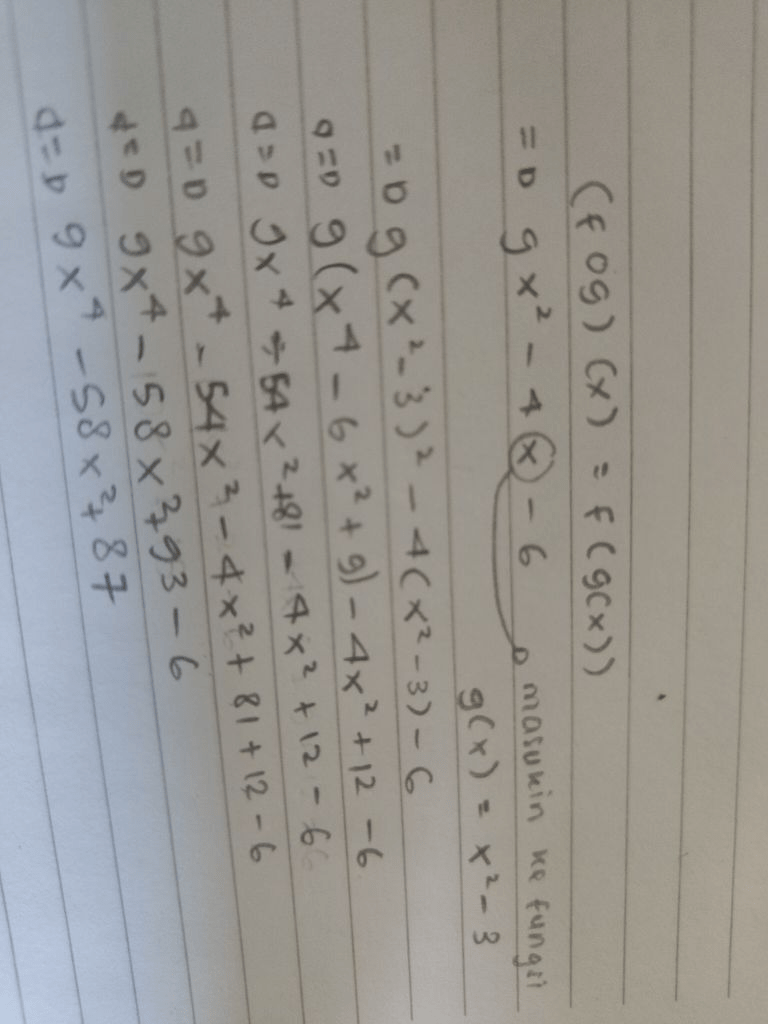 (f o g) (x) = f(g(x))
=D 9x² - 4x - 6 masukin ke fungsi
g(x) = x² - 3
=D 9(x² - 3)² - 4(x² - 3) - 6
=D 9(x⁴ - 6x² + 9) - 4x² + 12 - 6
=D 9x⁴ - 54x² + 81 - 4x² + 12 - 6
=D 9x⁴ - 54x² - 4x² + 81 + 12 - 6
=D 9x⁴ - 58x² + 93 - 6
=D 9x⁴ - 58x² + 87